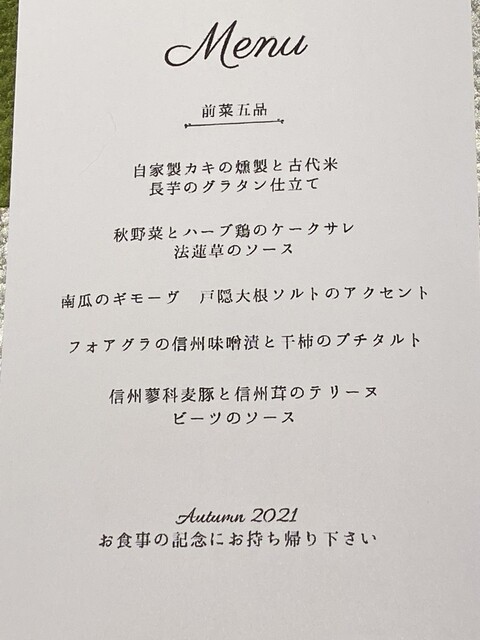 Menu
前菜五品
自家製カキの燻製と古代米
長芋のグラタン仕立て
秋野菜とハーブ鶏のケークサレ
法蓮草のソース
南瓜のギモーヴ　戸隠大根ソルトのアクセント
フォアグラの信州味噌漬と干柿のプチタルト
信州蓼科麦豚と信州茸のテリーヌ
ビーツのソース
Autumn 2021
お食事の記念にお持ち帰り下さい